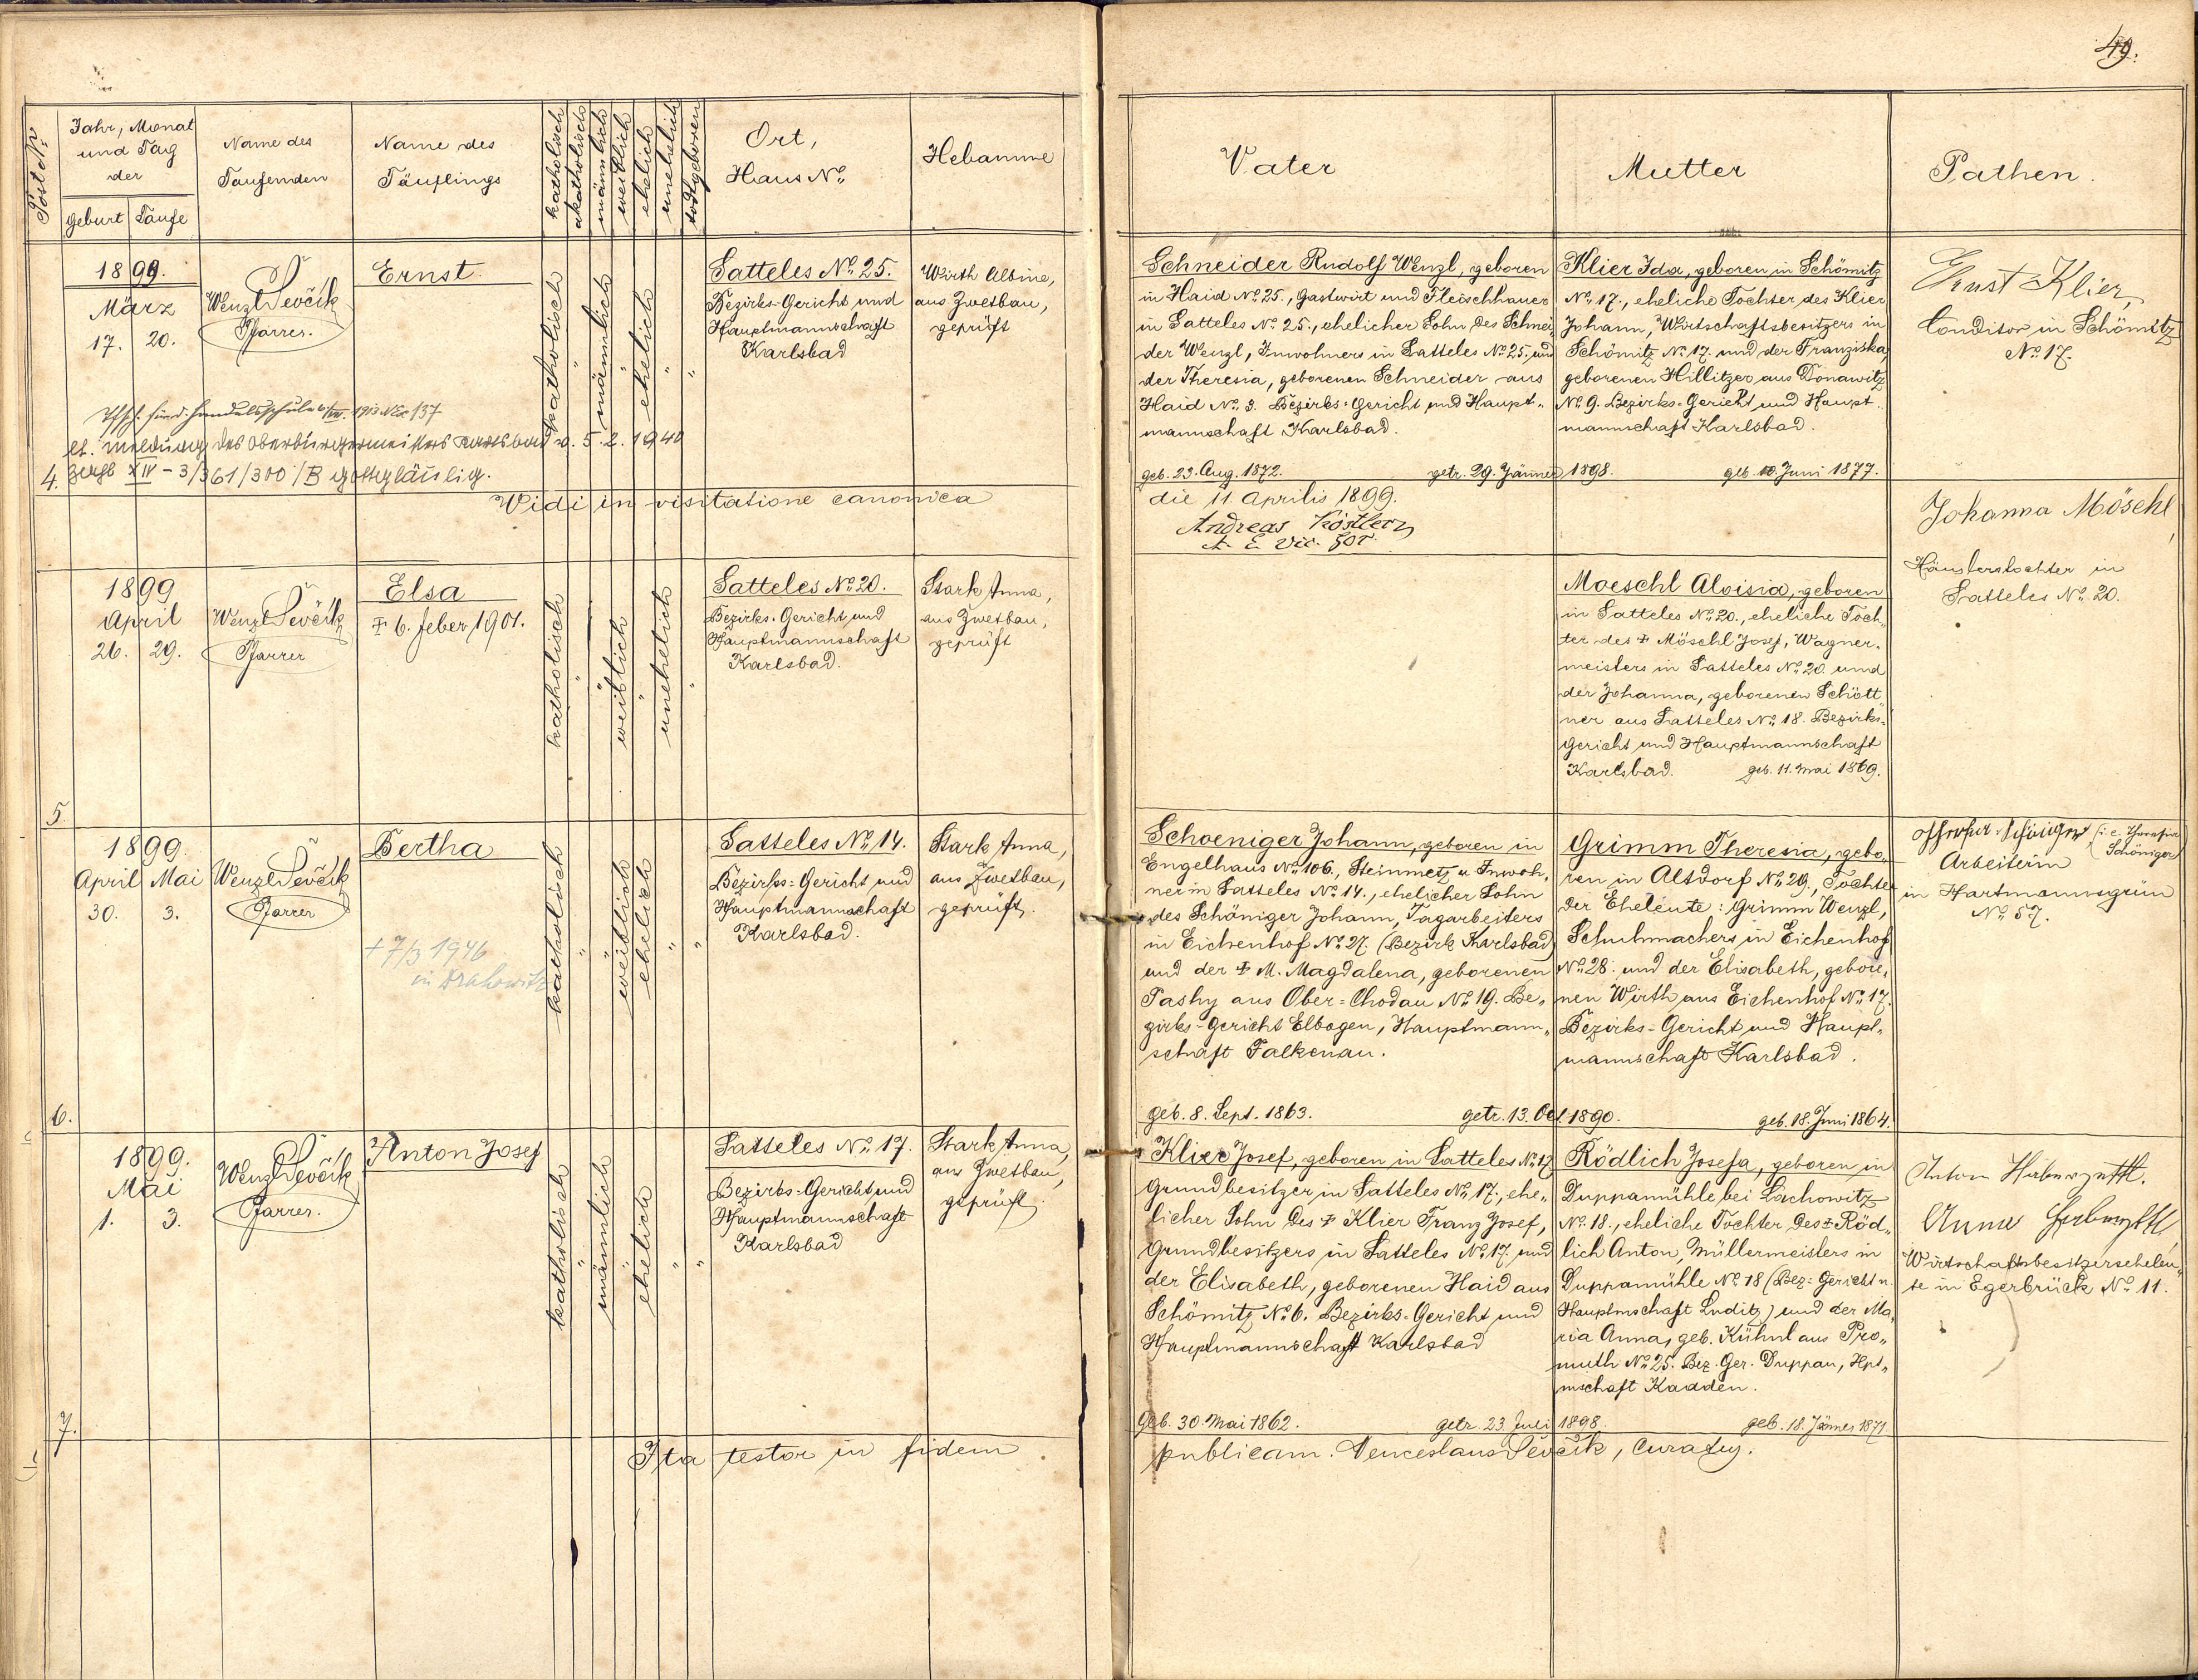 49.
Post No
Jahr, Monat
und Tag
der
Geburt Taufe
Name des
Taufenden
Name des
Täuflings
katholisch
akatholisch
männlich
weiblich
ehelich
unehelich
todtgeboren
Ort,
Haus No.
Hebamme
Vater
Mutter
Pathen.
4.
1899.
März
17. 20.
Wenzl Ševčík
Pfarrer.
Ernst
katholisch
"
männlich
"
ehelich
"
"
Satteles No. 25.
Bezirks-Gericht und
Hauptmannschaft
Karlsbad
Wirth Albine,
aus Zwetbau,
geprüft
Handelsschule 1913 137
lt. Meldung des Oberbürgermeisters Karlsbad v. 5.2.1940
XIV-3/361/300/B gottgläubig.
Schneider Rudolf Wenzl, geboren
in Haid No. 25., Gastwirt und Fleischhauer
in Satteles No. 25., ehelicher Sohn des Schnei
der Wenzl, Inwohners in Satteles No. 25. und
der Theresia, geborenen Schneider aus
Haid No. 3. Bezirks-Gericht und Haupt-
mannschaft Karlsbad.
geb. 23. Aug. 1872. getr. 29. Jänner 1898.
Klier Ida, geboren in Schömitz
No. 17., eheliche Tochter des Klier
Johann, Wirtschaftsbesitzers in
Schömitz No. 17. und der Franziska,
geborenen Hillitzer aus Donawitz
No. 9. Bezirks-Gericht und Haupt-
mannschaft Karlsbad.
geb. 10. Juni 1877.
Ernst Klier,
Conditor in Schömitz
No. 17.
Widi in visitatione canonica
die 11 Aprilis 1899.
Andreas Köstler
A. E. Vic. For.
5.
1899
April
26. 29.
Wenzl Ševčík
Pfarrer
Elsa
† 6. Feber 1901.
katholisch
"
"
weiblich
"
unehelich
"
Satteles No. 20.
Bezirks-Gericht und
Hauptmannschaft
Karlsbad.
Stark Anna,
aus Zwetbau,
geprüft
Moeschl Aloisia, geboren
in Satteles No. 20., eheliche Toch-
ter des † Möschl Josef, Wagner-
meisters in Satteles No. 20. und
der Johanna, geborenen Schött
ner aus Satteles No. 18. Bezirks-
Gericht und Hauptmannschaft
Karlsbad. geb. 11. Mai 1869.
Johanna Möschl,
Häuslerstochter in
Satteles No. 20.
6.
1899.
April Mai
30. 3.
Wenzl Ševčík
Pfarrer
Bertha
† 7/3 1946
in Drahowitz
katholisch
"
"
weiblich
ehelich
"
"
Satteles No. 14.
Bezirks-Gericht und
Hauptmannschaft
Karlsbad.
Stark Anna,
aus Zwetbau,
geprüft.
Schoeniger Johann, geboren in
Engelhaus No. 106., Steinmetz u. Inwoh-
ner in Satteles No. 14., ehelicher Sohn
des Schöniger Johann, Tagarbeiters
in Eichenhof No. 27. (Bezirk Karlsbad)
und der † M. Magdalena, geborenen
Pashy aus Ober-Chodau No. 19. Be-
zirks-Gericht Elbogen, Hauptmann-
schaft Falkenau.
geb. 8. Sept. 1863. getr. 13. Oct. 1890.
Grimm Theresia, gebo-
ren in Altdorf No. 29., Tochter
der Eheleute: Grimm Wenzl,
Schuhmachers in Eichenhof
No. 28. und der Elisabeth, gebore-
nen Wirth aus Eichenhof No. 17.
Bezirks-Gericht und Haupt-
mannschaft Karlsbad.
geb. 18. Juni 1864.
Schöniger, (i.e. Theresia
Schöniger)
Arbeiterin
in Hartmannsgrün
No. 57.
7.
1899.
Mai
1. 3.
Wenzl Ševčík
Pfarrer.
Anton Josef
katholisch
"
männlich
"
ehelich
"
"
Satteles No. 17.
Bezirks-Gericht und
Hauptmannschaft
Karlsbad
Stark Anna,
aus Zwetbau,
geprüft
Klier Josef, geboren in Satteles No. 17
Grundbesitzer in Satteles No. 17., ehe-
licher Sohn des † Klier Franz Josef,
Grundbesitzers in Satteles No. 17. und
der Elisabeth, geborenen Haid aus
Schömitz No. 6. Bezirks-Gericht und
Hauptmannschaft Karlsbad
geb. 30. Mai 1862. getr. 23 Juli 1898.
Rödlich Josefa, geboren in
Duppamühle bei Lachowitz
No. 18., eheliche Tochter des † Röd-
lich Anton, Müllermeisters in
Duppamühle No. 18 (Bez: Gericht u.
Hauptmschaft Luditz) und der Ma-
ria Anna, geb. Kühnl aus Pro-
muth No. 25. Bez. Ger. Duppau, Hpt-
mschaft Kaaden.
geb. 18. Jänner 1871
Anton
Anna
Wirtschaftsbesitzerseheleu-
te in Egerbrück No. 11.
Ita testor in fidem
publicam. Venceslaus Ševčík, Curatus.